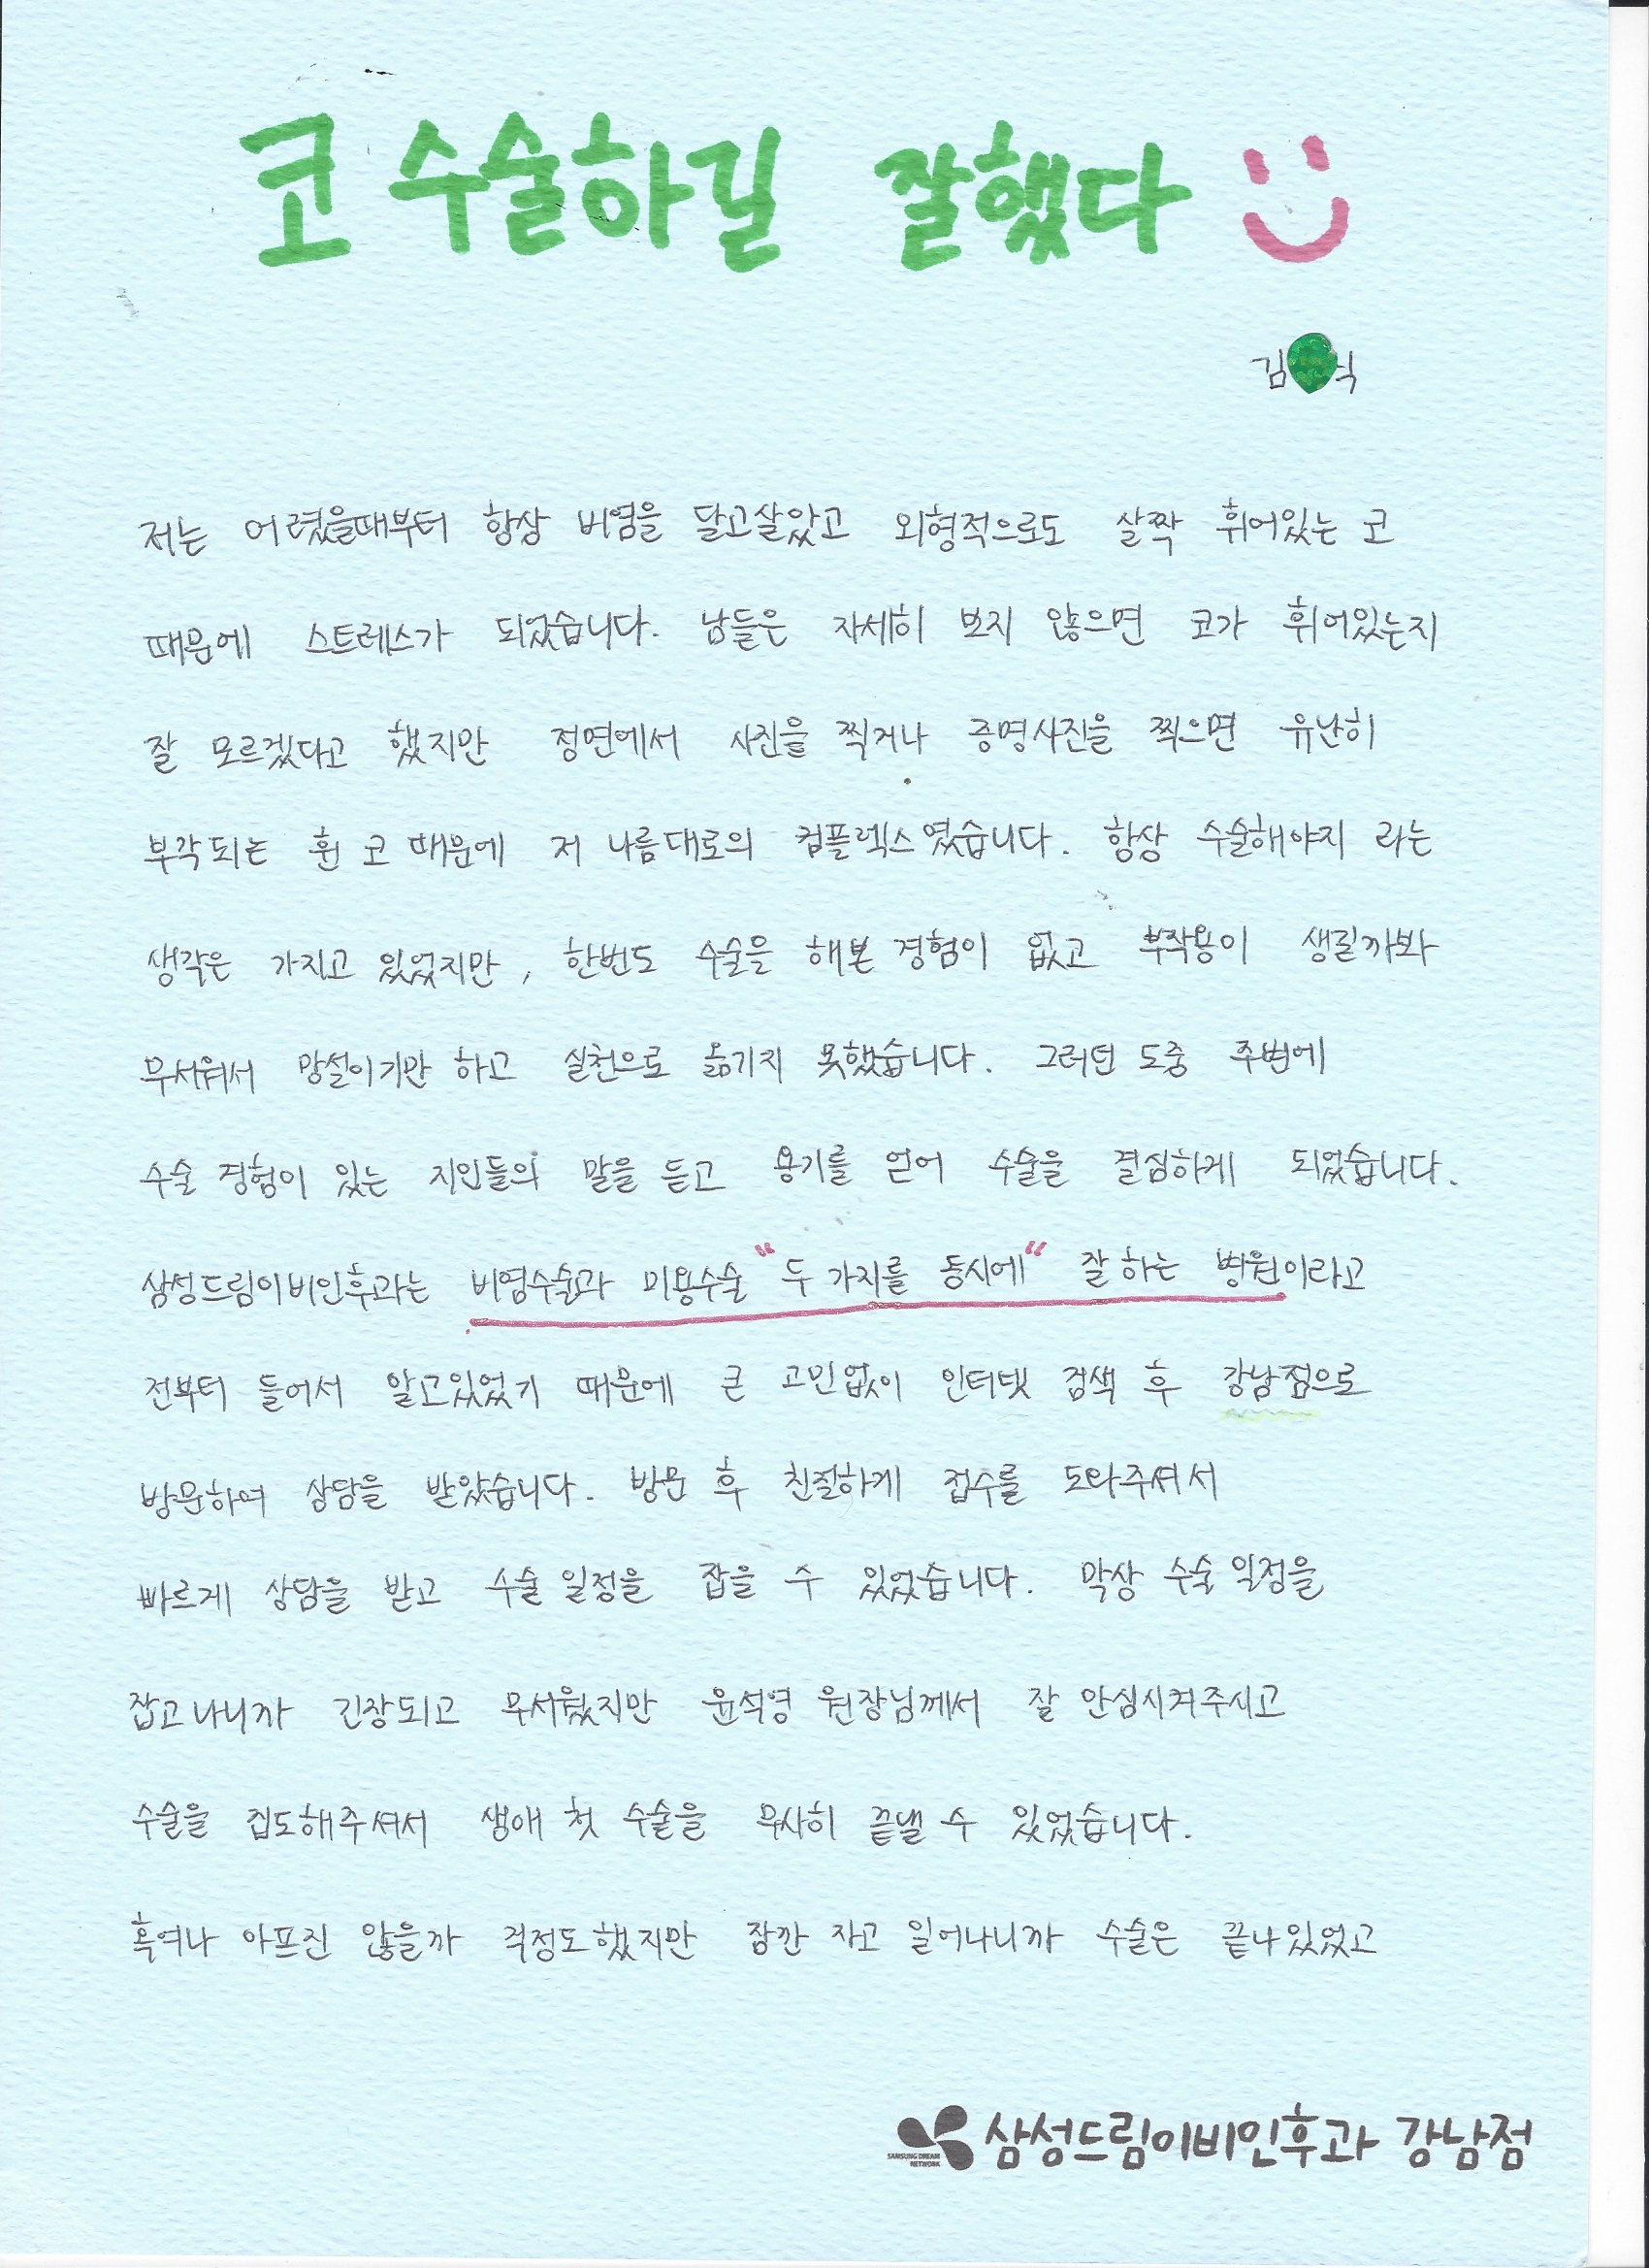 코 수술하길 잘했다
김 식
저는 어렸을때부터 항상 비염을 달고살았고 외형적으로도 살짝 휘어있는 코
때문에 스트레스가 되었습니다. 남들은 자세히 보지 않으면 코가 휘어있는지
잘 모르겠다고 했지만 정면에서 사진을 찍거나 증명사진을 찍으면 유난히
부각되는 휜 코 때문에 저 나름대로의 컴플렉스였습니다. 항상 수술해야지 라는
생각은 가지고 있었지만, 한번도 수술을 해본 경험이 없고 부작용이 생길까봐
무서워서 망설이기만 하고 실천으로 옮기지 못했습니다. 그러던 도중 주변에
수술 경험이 있는 지인들의 말을 듣고 용기를 얻어 수술을 결심하게 되었습니다.
삼성드림이비인후과는 비염수술과 미용수술 "두 가지를 동시에" 잘 하는 병원이라고
전부터 들어서 알고있었기 때문에 큰 고민없이 인터넷 검색 후 강남점으로
방문하여 상담을 받았습니다. 방문 후 친절하게 접수를 도와주셔서
빠르게 상담을 받고 수술 일정을 잡을 수 있었습니다. 막상 수술 일정을
잡고나니까 긴장되고 무서웠지만 윤석영 원장님께서 잘 안심시켜주시고
수술을 집도해주셔서 생애 첫 수술을 무사히 끝낼 수 있었습니다.
혹여나 아프진 않을까 걱정도했지만 잠깐 자고 일어나니까 수술은 끝나있었고
SAMSUNG DREAM NETWORK 삼성드림이비인후과 강남점